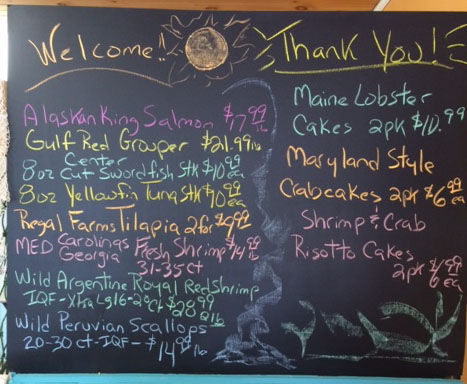 Welcome!!
Thank You!
Alaskan King Salmon $7.99 lb
Gulf Red Grouper $21.99 lb
Center
8oz Cut Swordfish Stk $10.99 ea
8oz Yellowfin Tuna Stk $10.99 ea
Regal Farms Tilapia 2 for $9.99
MED Carolinas Fresh Shrimp $14.99 lb
Georgia 31-35 ct
Wild Argentine Royal Red Shrimp
IQF - Xtra Lg 16-20ct $28.99 2lb
Wild Peruvian Scallops
20-30 ct - IQF - $14.99 lb
Maine Lobster
Cakes 2pk $10.99
Maryland Style
Crabcakes 2pk $6.99 ea
Shrimp & Crab
Risotto Cakes
2pk
ea